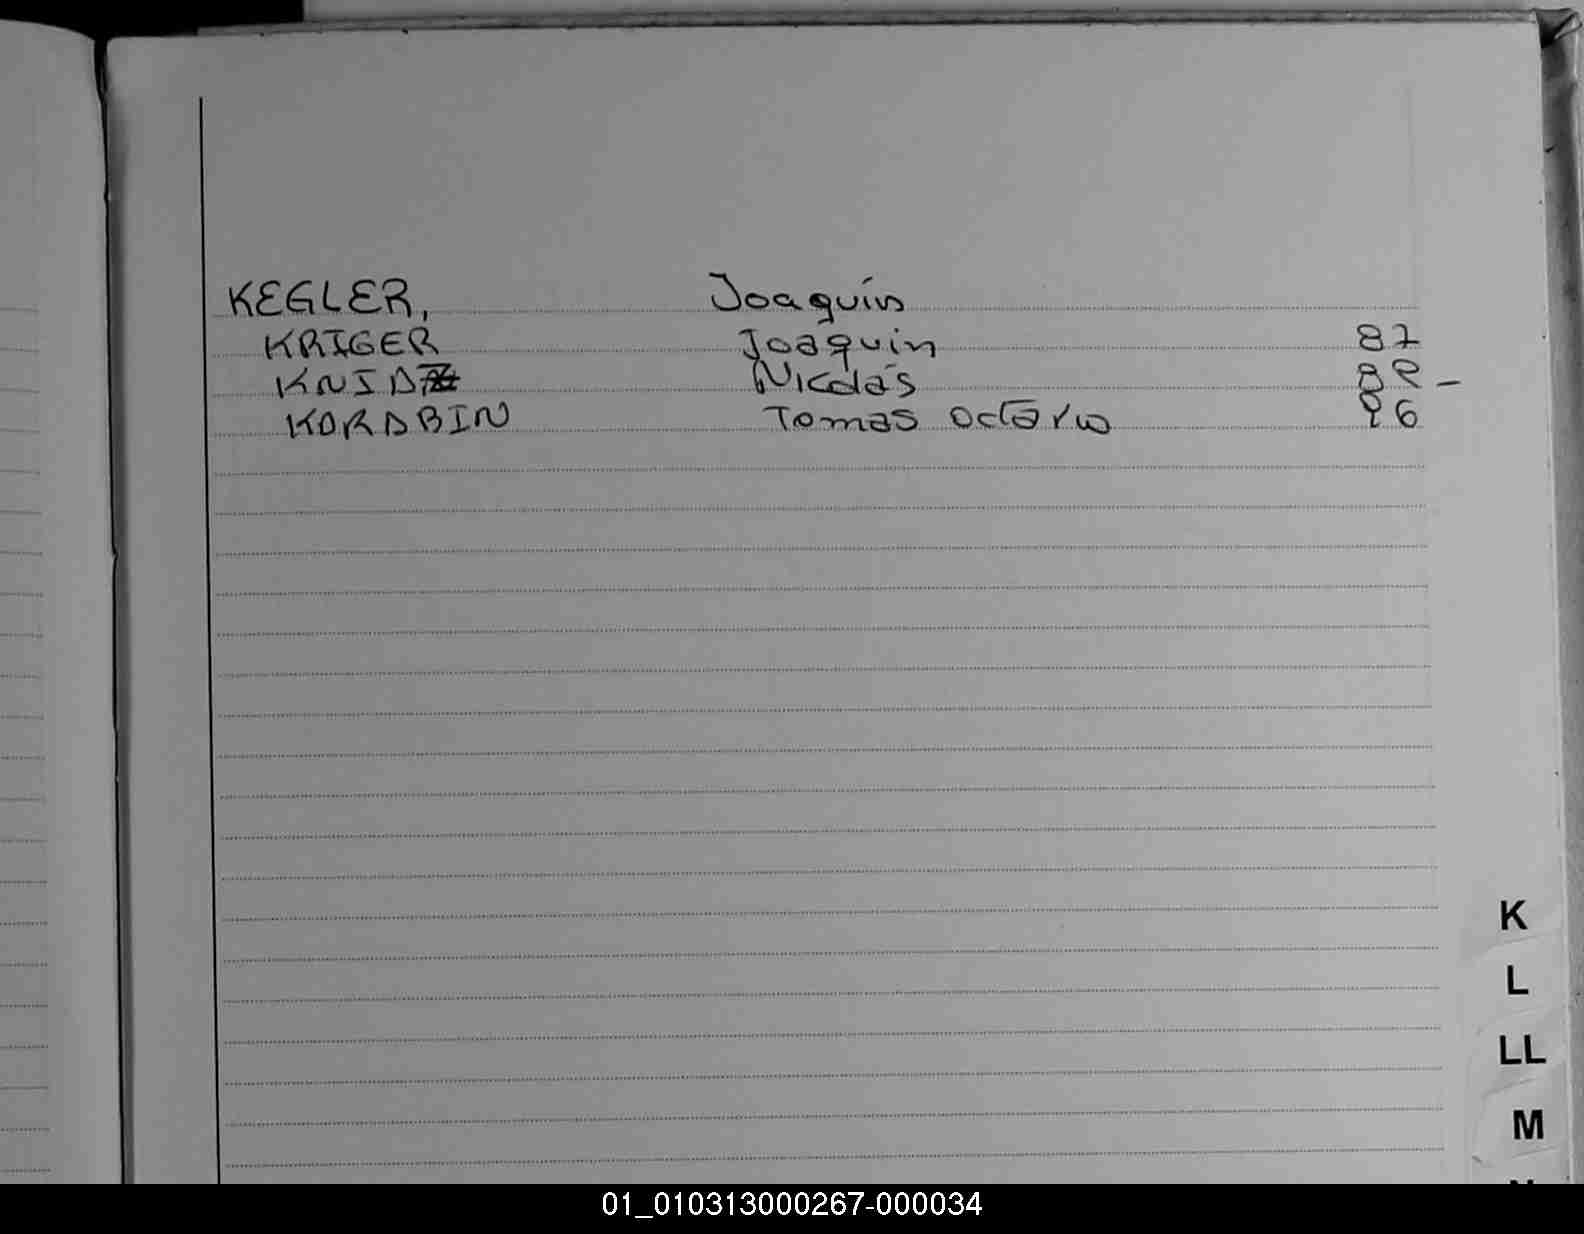 KEGLER, Joaquín
KRIGER Joaquin 87
KNIDA Nicolás 89 -
KORABIN Tomas Octavio 96
K
L
LL
M
01_010313000267-000034